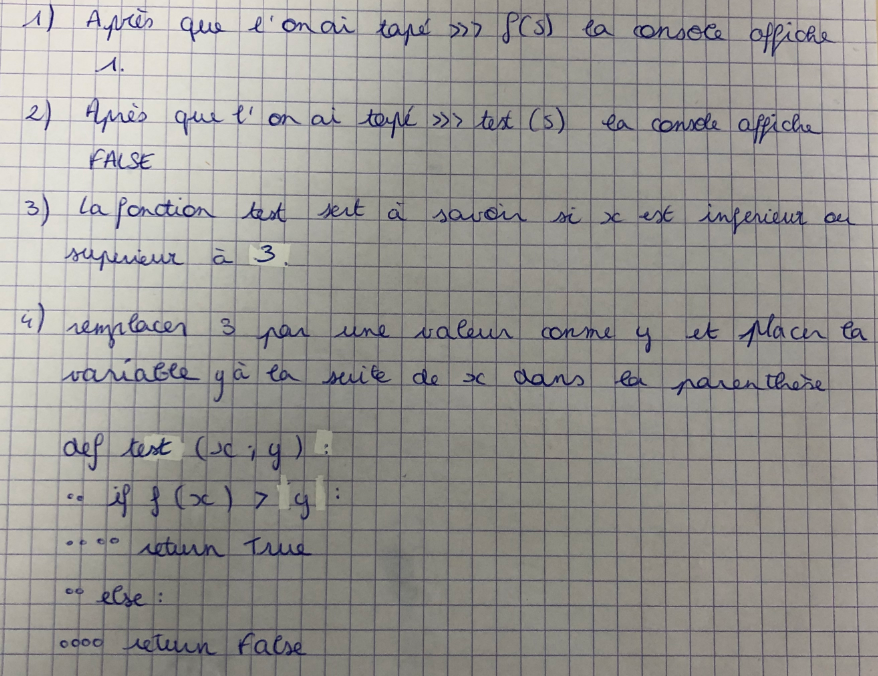 1) Après que l'on ai tapé >>> f(5) la console affiche
1.
2) Après que l'on ai tapé >>> test (5) la console affiche
FALSE
3) la fonction test sert à savoir si x est inferieur ou
superieur à 3.
4) remplacer 3 par une valeur comme y et placer la
variable y à la suite de x dans la parenthèse
def test (x ; y) :
•• if f (x) > y :
•••• return True
•• else :
•••• return False